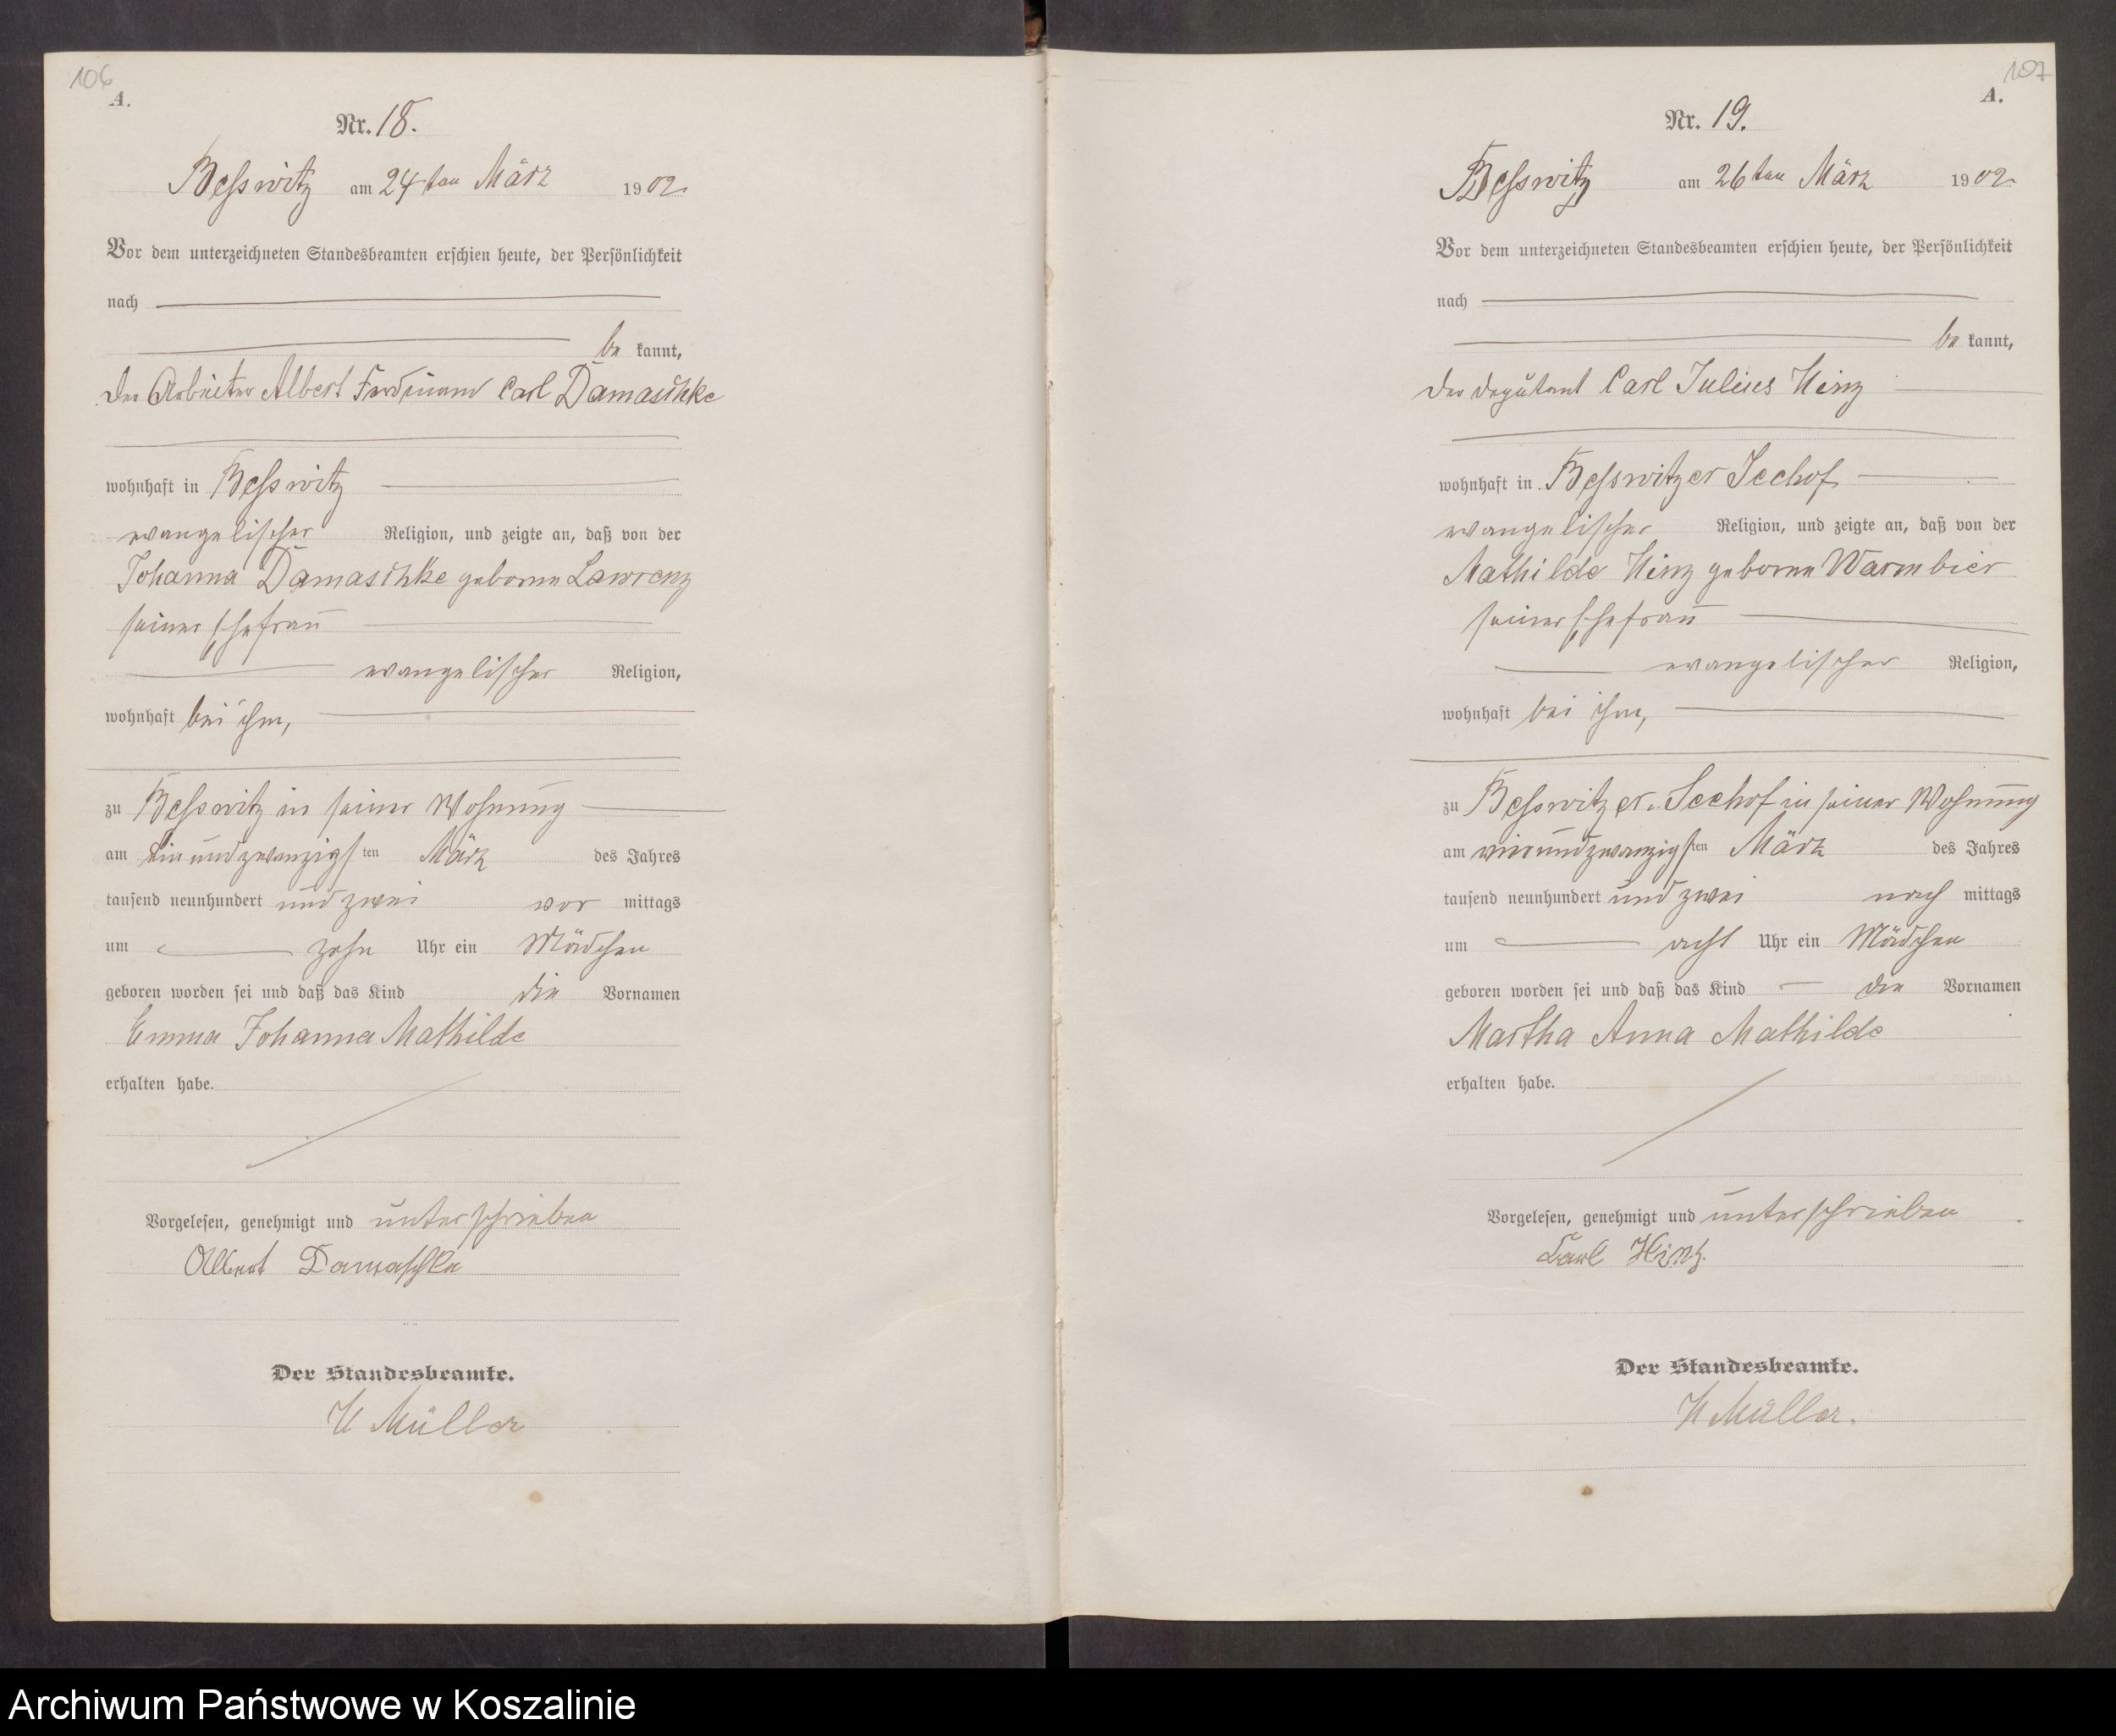 106
A.
Nr. 18.
Besswitz am 24ten März 1902.
Vor dem unterzeichneten Standesbeamten erschien heute, der Persönlichkeit
nach
be kannt,
der Arbeiter Albert Ferdinand Carl Damaschke
wohnhaft in Besswitz
evangelischer Religion, und zeigte an, daß von der
Johanna Damaschke geborne Lawrenz
seiner Ehefrau
evangelischer Religion,
wohnhaft bei ihm,
zu Besswitz in seiner Wohnung
am ein und zwanzigsten März des Jahres
tausend neunhundert und zwei vor mittags
um zehn Uhr ein Mädchen
geboren worden sei und daß das Kind die Vornamen
Emma Johanna Mathilde
erhalten habe.
Vorgelesen, genehmigt und unterschrieben
Albert Damaschke
Der Standesbeamte.
H Müller
107
A.
Nr. 19.
Besswitz am 26ten März 1902.
Vor dem unterzeichneten Standesbeamten erschien heute, der Persönlichkeit
nach
be kannt,
der Deputant Carl Julius Hinz
wohnhaft in Besswitzer Seehof
evangelischer Religion, und zeigte an, daß von der
Mathilde Hinz geborne Warmbier
seiner Ehefrau
evangelischer Religion,
wohnhaft bei ihm,
zu Besswitzer Seehof in seiner Wohnung
am vierundzwanzigsten März des Jahres
tausend neunhundert und zwei nach mittags
um acht Uhr ein Mädchen
geboren worden sei und daß das Kind die Vornamen
Martha Anna Mathilde
erhalten habe.
Vorgelesen, genehmigt und unterschrieben
Carl Hinz.
Der Standesbeamte.
H Müller.
Archiwum Państwowe w Koszalinie